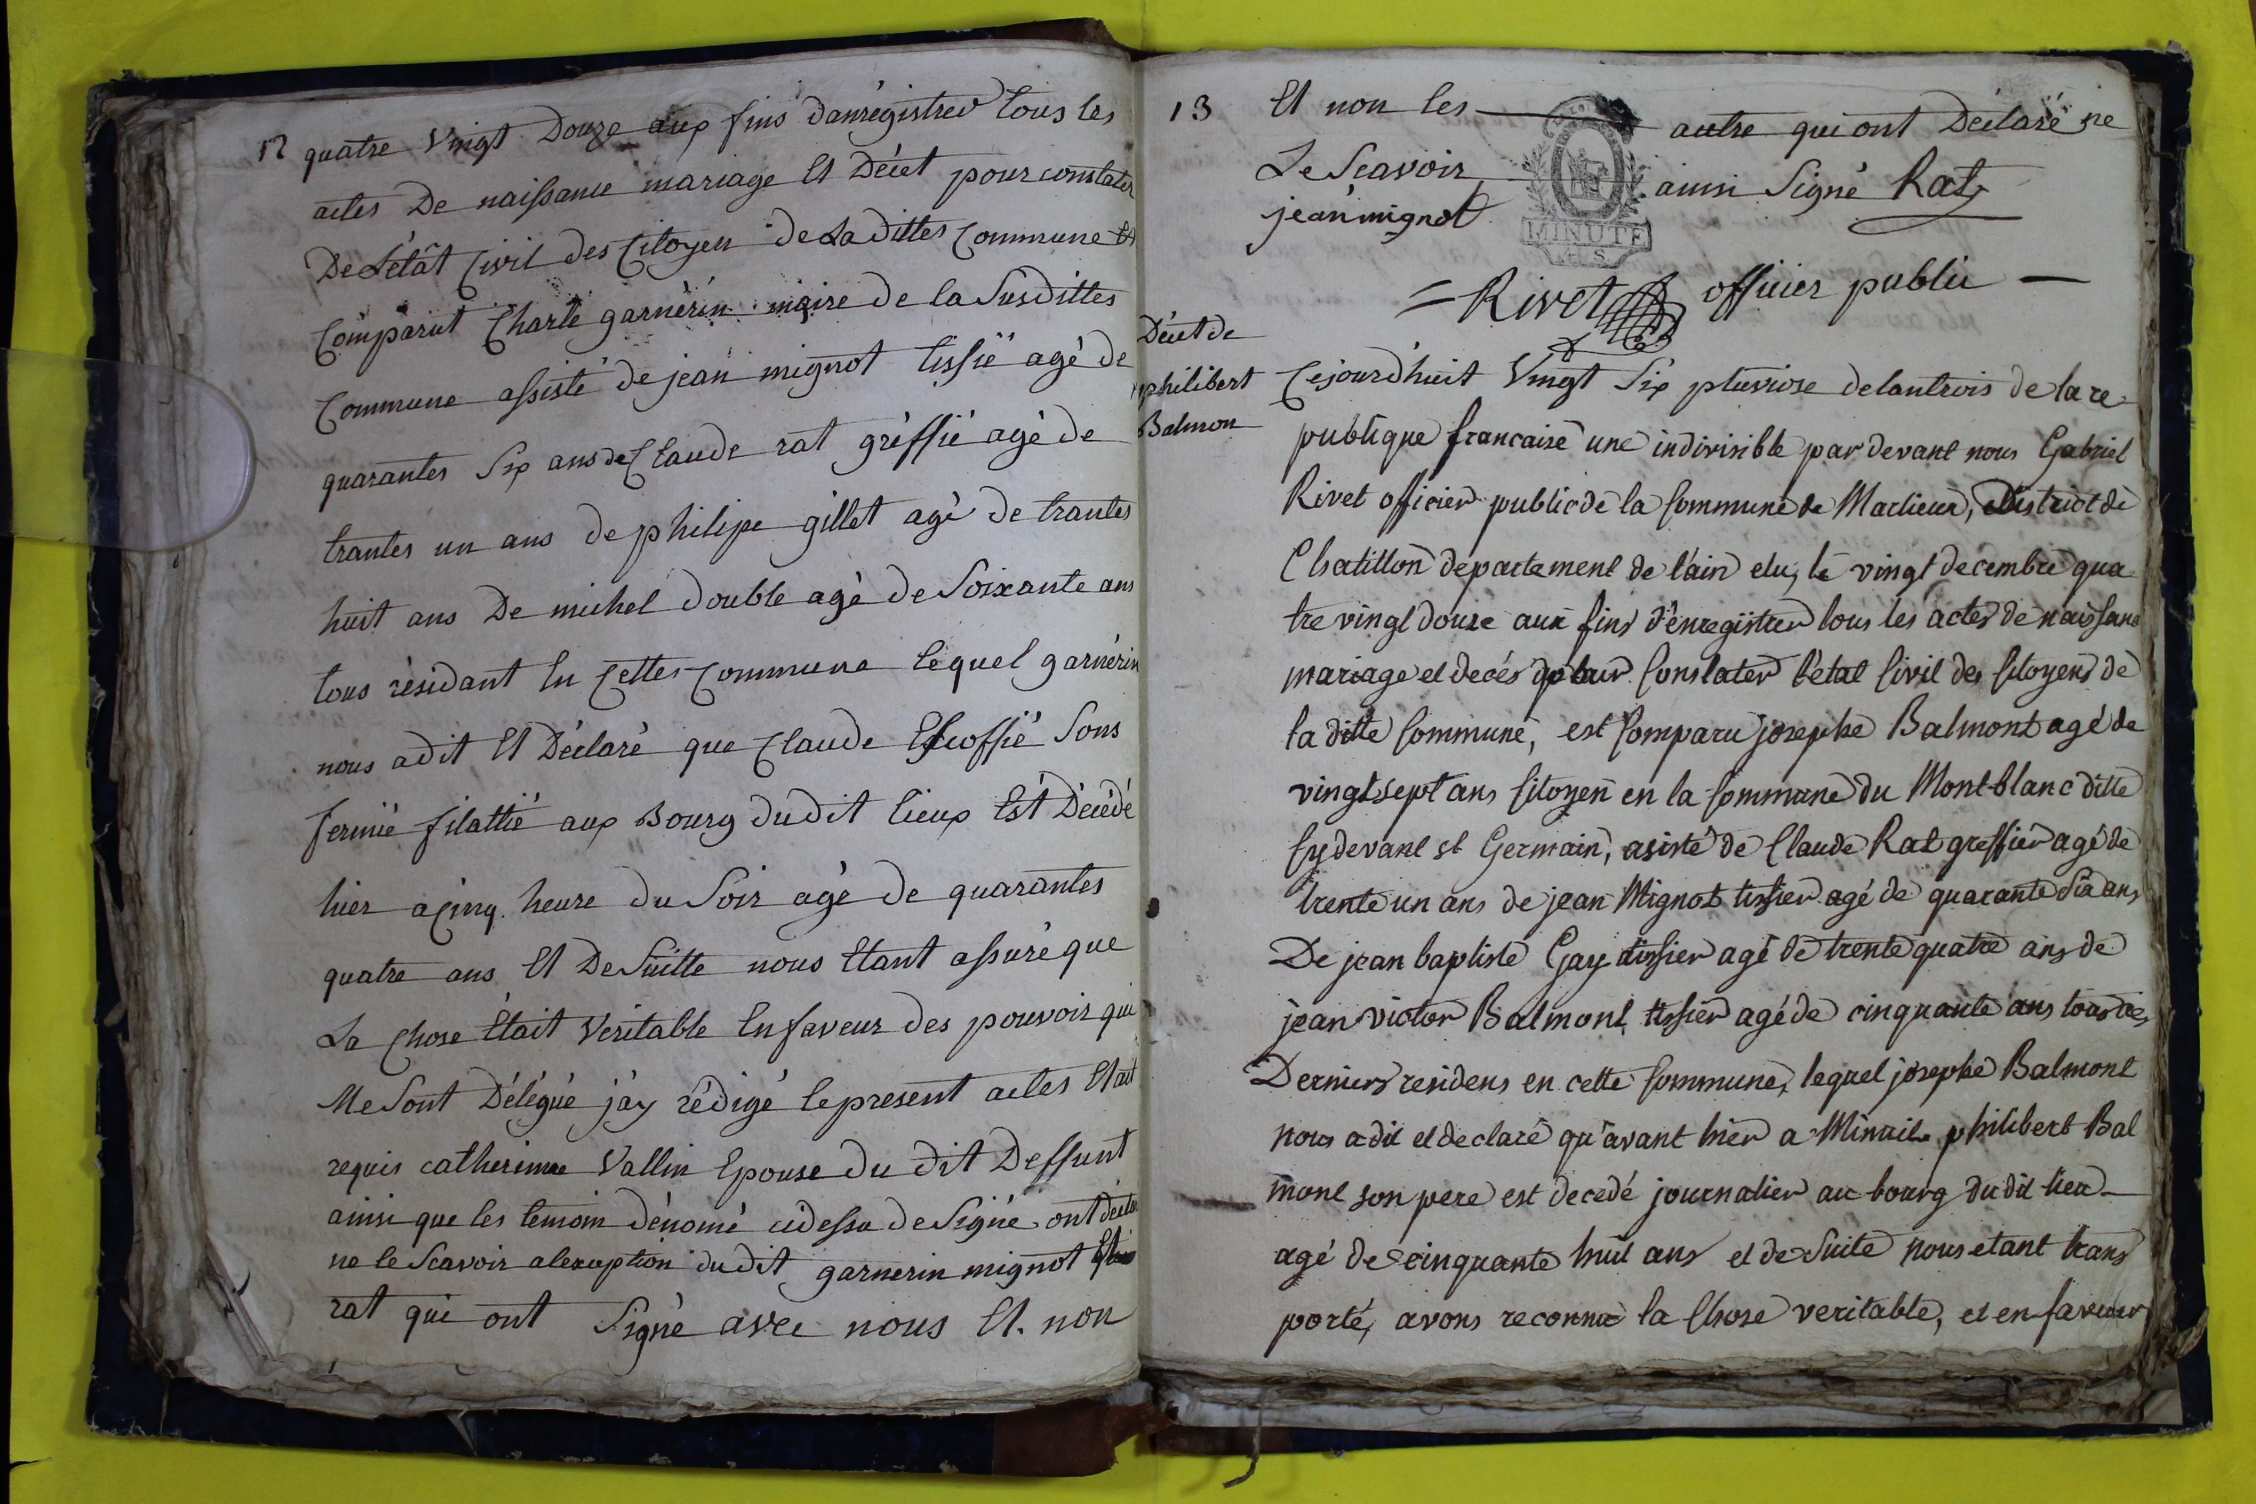 12
quatre Vingt Douze aux fins danrégistrer tous les
actes De naissance mariage Et Décet pour constater
De L'état Civil des Citoyen de La dittes Commune Et
Comparut Charle garnérin maire de la Susdittes
Commune assisté de jean mignot tissié agé de
quarantes Six ans de Claude rat gréffié agé de
trantes un ans de philipe gillet agé de trantes
huit ans De michel double agé de Soixante ans
tous résidant En Cettes Commune lequel garnérin
nous a dit Et Déclaré que Claude Escoffié Sons
fermié filattié aux Bourg dudit lieux Est Décédé
hier a Cinq heure du Soir agé de quarantes
quatre ans Et De Suitte nous Etant assuré que
La Chose Etait Veritable En faveur des pouvoir qui
Me Sont Délégué j'ay rédigé le present actes Et ait
requis catherinne Vallin Epouse du dit Deffunt
ainsi que les temoin dénomé cidessu de Signé ont déclaré
ne le Scavoir alexception du dit garnerin mignot Et
rat qui ont Signé avec nous Et. non
13
Et non les autre qui ont Déclaré ne
Le Scavoir ainsi Signé Rat
jean mignot
MINUTE
= Rivet officier public —
Décet de
philibert
Balmon
Cejourdhuit Vingt Six pluviose de lantrois de la re-
publique francaise une indivisible par devant nous Gabriel
Rivet officier public de la Commune de Marlieux, District de
Chatillon departement de l'ain elu, le vingt decembre qua-
tre vingt douze aux fins d'enregistrer tous les actes de naissance
mariage et decés Constater l'état Civil des Citoyens de
la ditte Commune, est Comparu josephe Balmont agé de
vingt sept ans Citoyen en la Commune du Mont-blanc ditte
Cy devant st Germain, asisté de Claude Rat greffier agé de
trente un ans de jean Mignot tissier agé de quarante Six ans
De jean baptiste Gay tissier agé de trente quatre ans de
jean victor Balmont, tissier agé de cinquante ans tous ces
Derniers residens en cette Commune, lequel josephe Balmont
nous a dit et declaré qu'avant hier a Minuit philibert Bal
mont son pere est decedé journalier au bourg du dit lieu
agé de cinquante huit ans et de Suite nous etant trans
porté, avons reconnu la Chose veritable, et en faveur